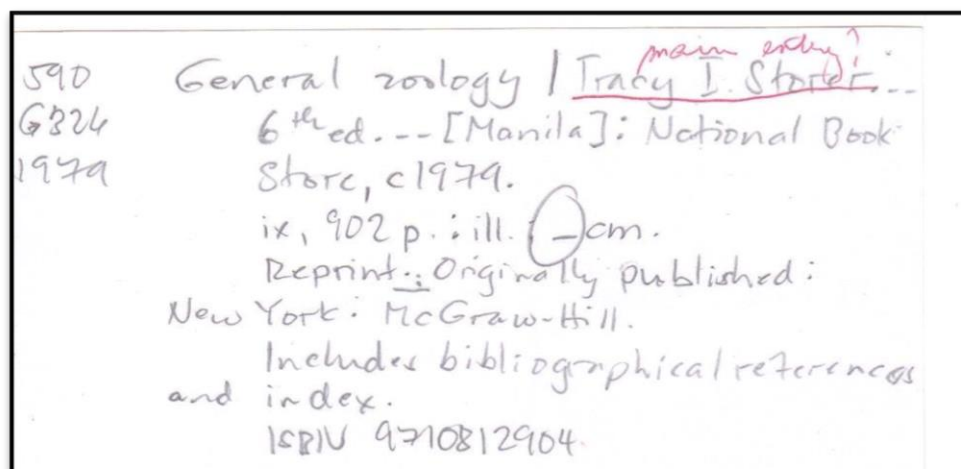 main entry?
590 General zoology / Tracy I. Storer...
G324 6th ed. -- [Manila] : National Book
1979 Store, c1979.
ix, 902 p. : ill. _ cm.
Reprint.: Originally published :
New York : McGraw-Hill.
Includes bibliographical references
and index.
ISBN 9710812904